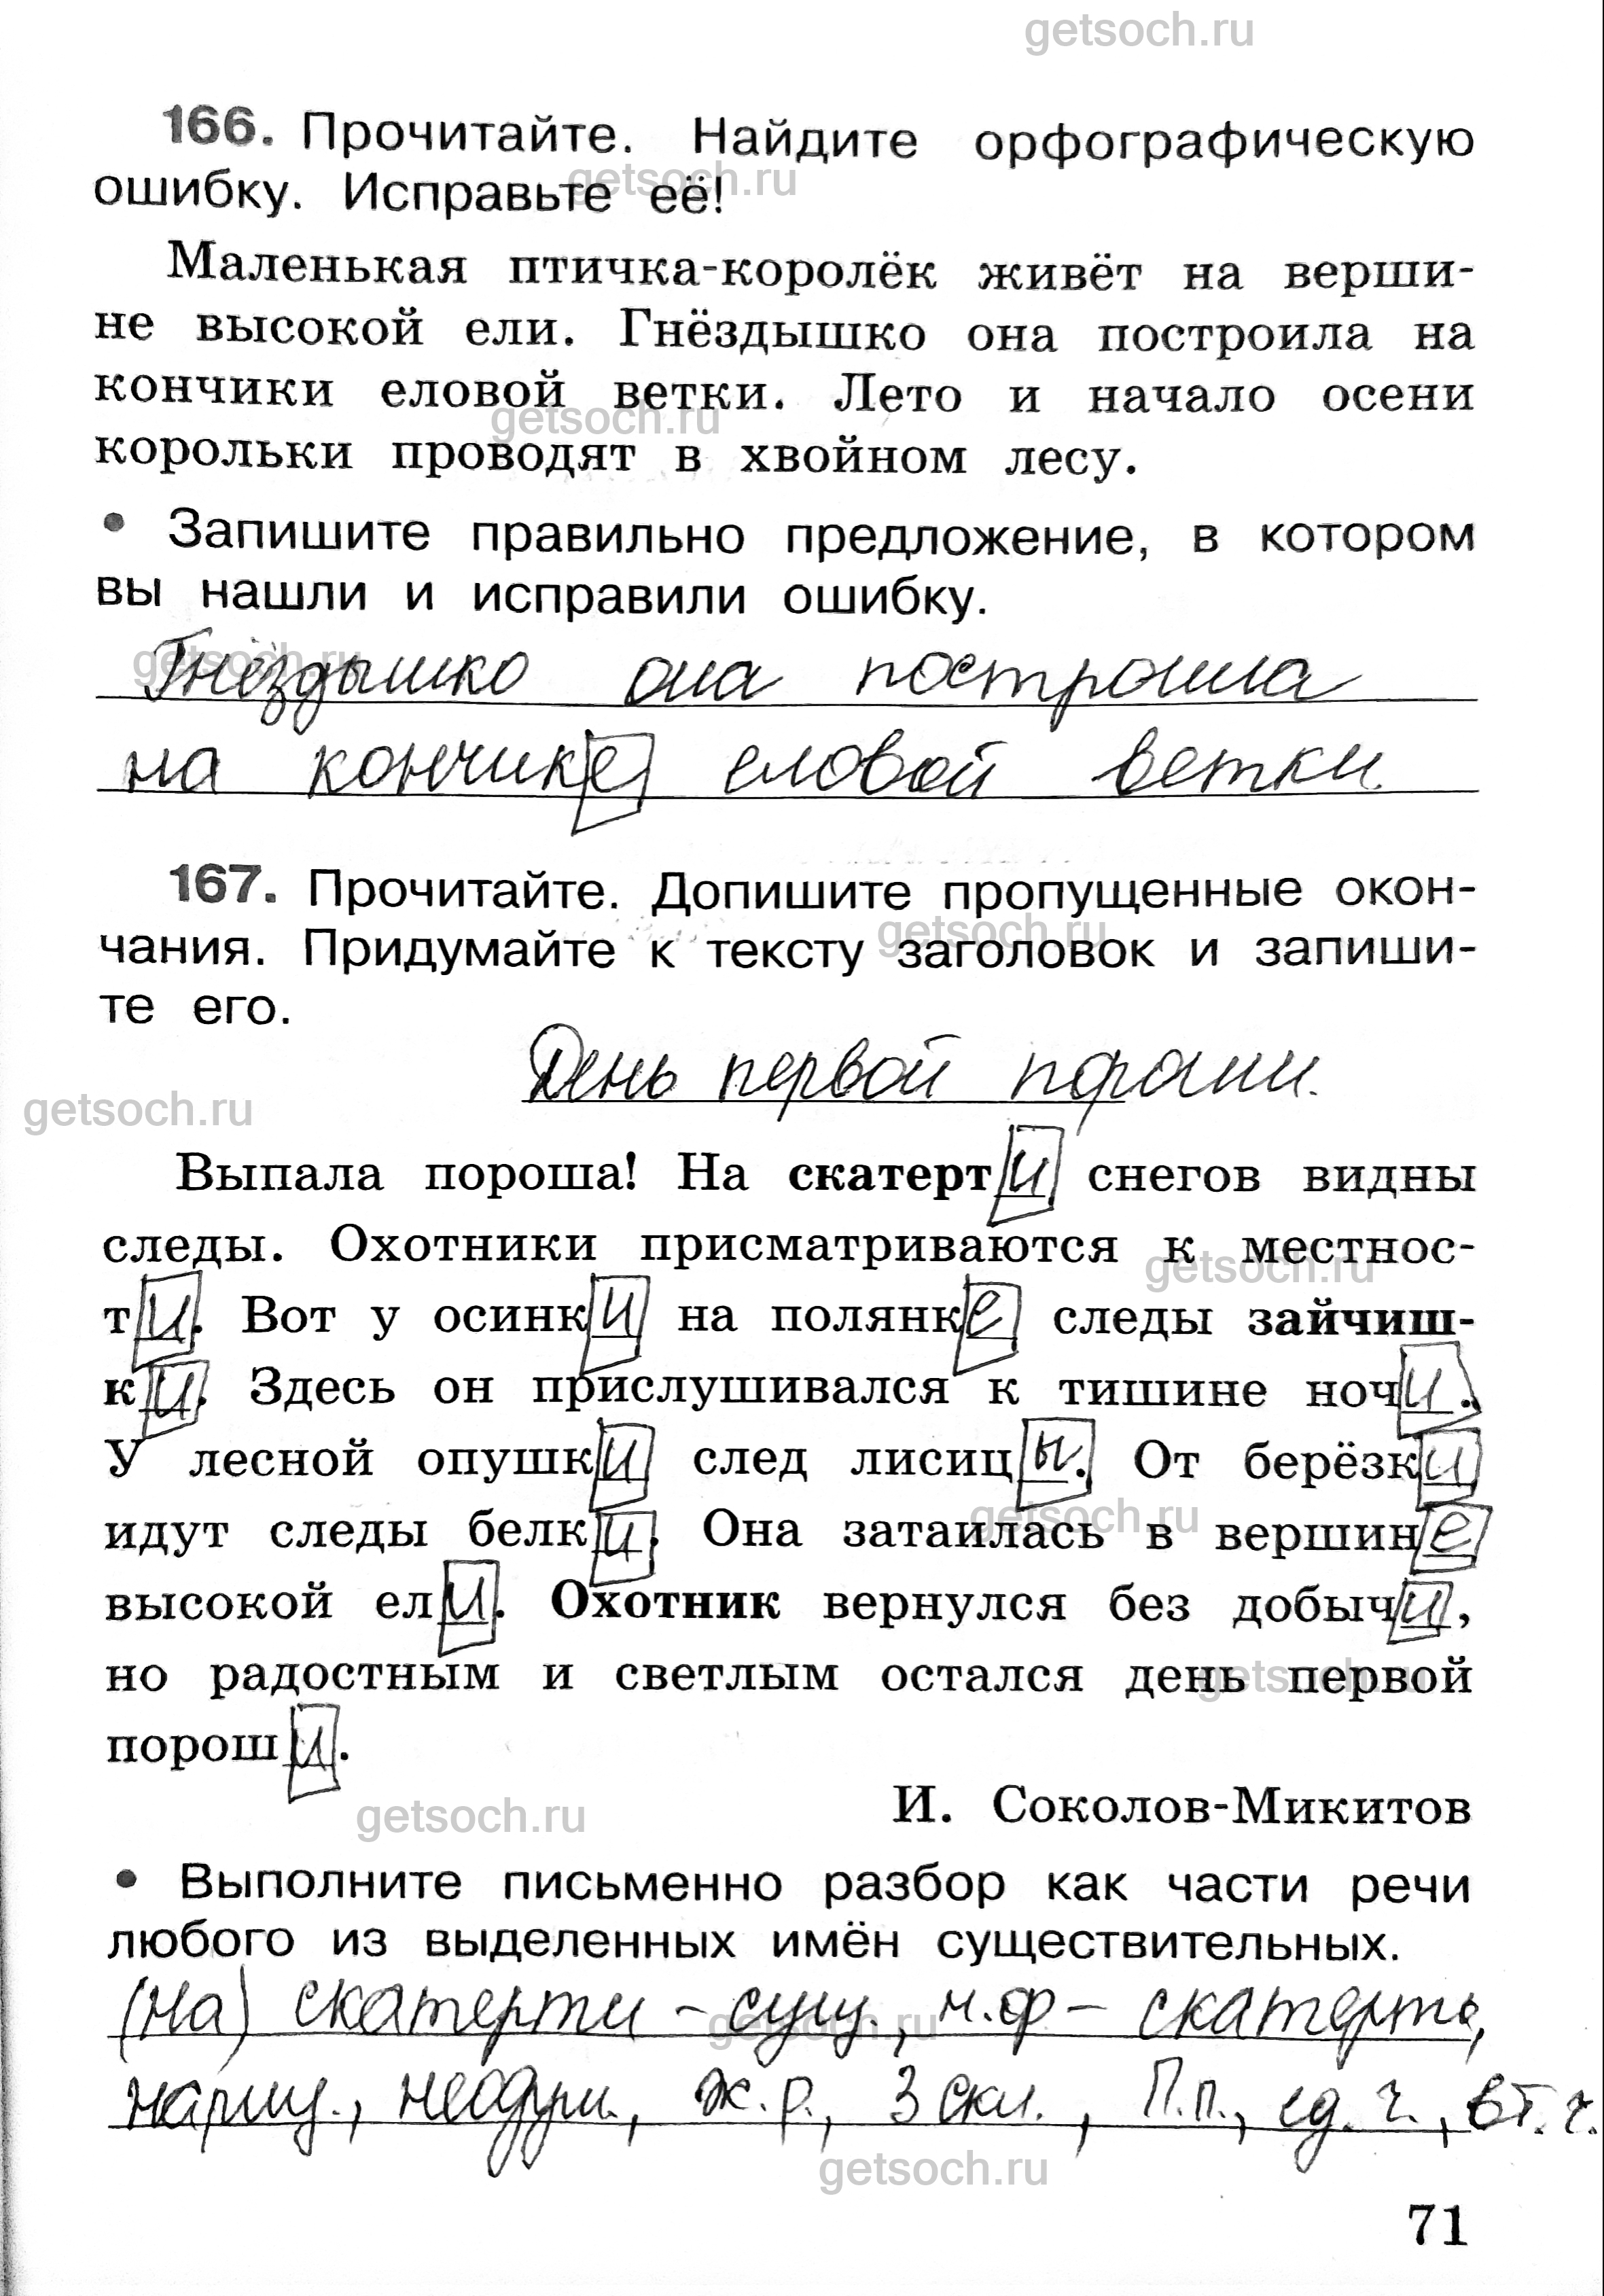 getsoch.ru
166. Прочитайте. Найдите орфографическую
ошибку. Исправьте её!
getsoch.ru
Маленькая птичка-королёк живёт на верши-
не высокой ели. Гнёздышко она построила на
кончики еловой ветки. Лето и начало осени
getsoch.ru
корольки проводят в хвойном лесу.
• Запишите правильно предложение, в котором
вы нашли и исправили ошибку.
getsoch.ru
Гнёздышко она построила
на кончике еловой ветки.
167. Прочитайте. Допишите пропущенные окон-
getsoch.ru
чания. Придумайте к тексту заголовок и запиши-
те его.
День первой пороши.
getsoch.ru
Выпала пороша! На скатерти снегов видны
следы. Охотники присматриваются к местнос-
getsoch.ru
ти. Вот у осинки на полянке следы зайчиш-
ки. Здесь он прислушивался к тишине ночи.
У лесной опушки след лисицы. От берёзки
getsoch.ru
идут следы белки. Она затаилась в вершине
высокой ели. Охотник вернулся без добычи,
но радостным и светлым остался день первой
getsoch.ru
пороши.
И. Соколов-Микитов
getsoch.ru
• Выполните письменно разбор как части речи
любого из выделенных имён существительных.
(на) скатерти – сущ., н.ф – скатерть,
getsoch.ru
нариц., неодуш., ж.р., 3 скл., П.п., ед. ч., вт.ч.
getsoch.ru
71